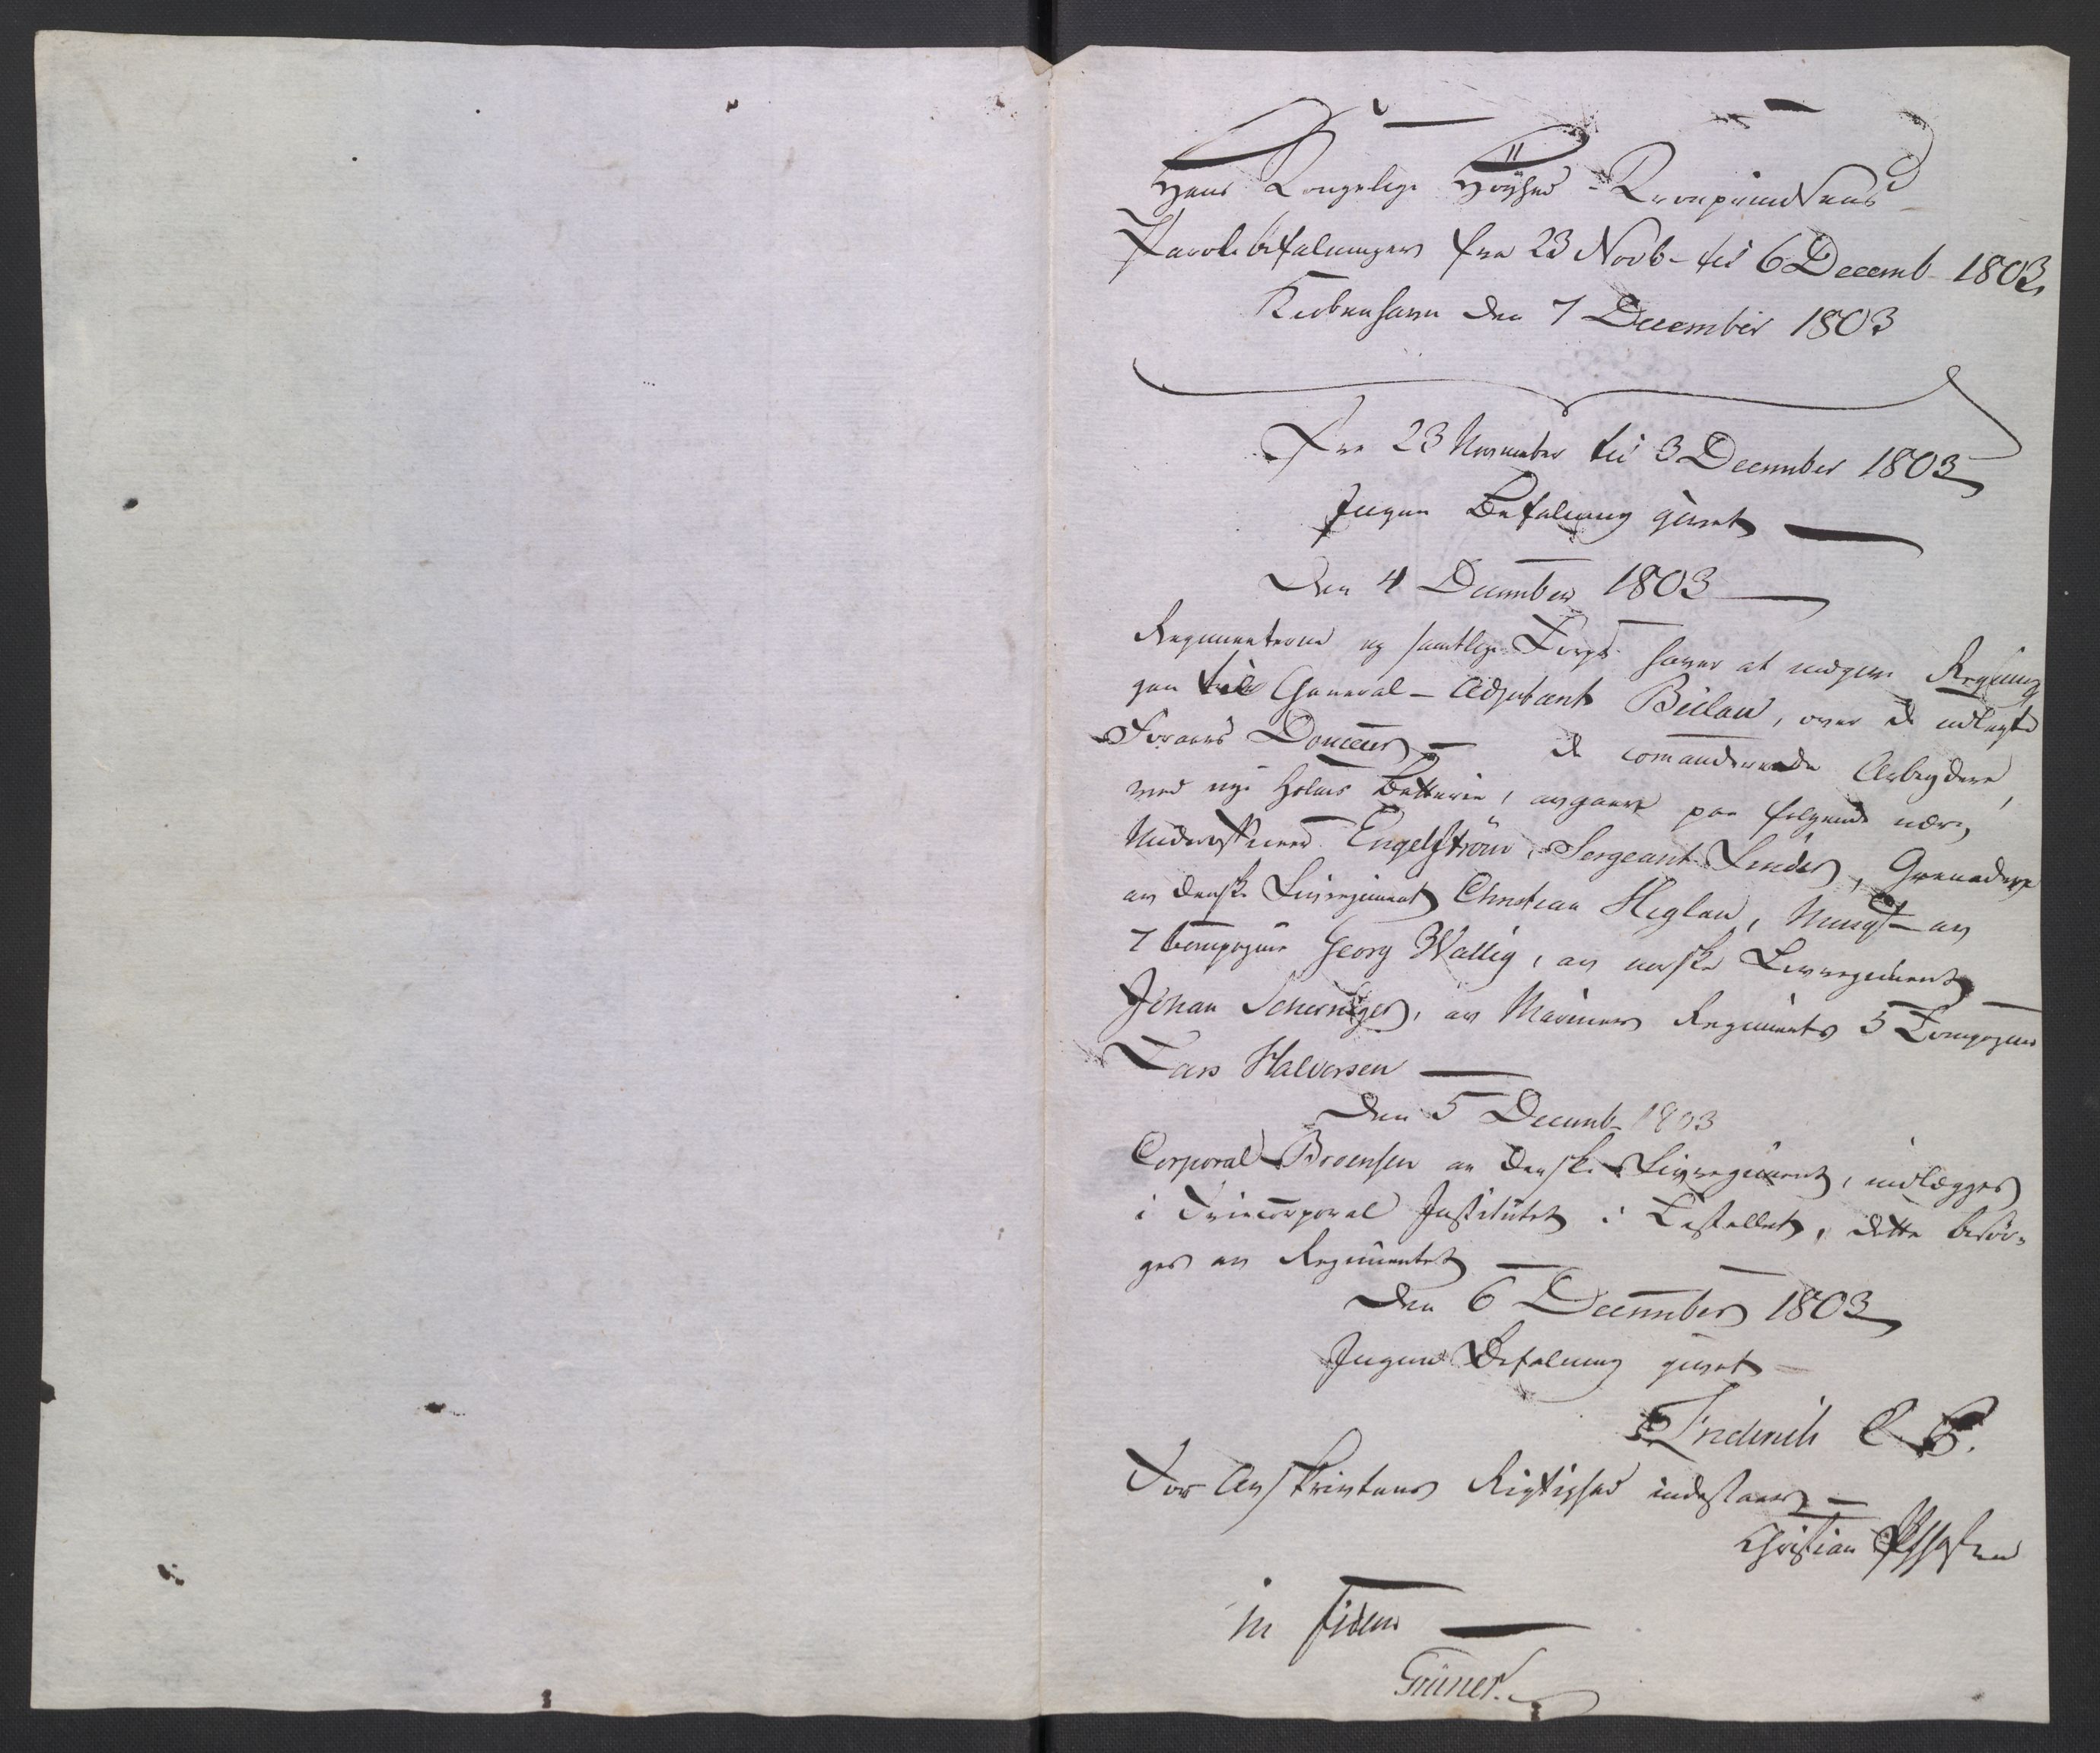 Hans Kongelige Høyhed Kronprindsens
Parolebefalninger fra 23 Novb- til 6 Decemb- 1803,
Kiøbenhavn den 7 December 1803
Fra 23 November til 3 December 1803
Ingen Befaling givet
Den 4 December 1803
Regimenterne og samtlige Corps haver at indgive Regning
gen til General-Adjutant Bülow, over de udlagte
Foraars Douceur - de comanderende Arbeydere,
ved nye Holms Batterie, avgaaer paa følgende nær,
Underofficeer Engelström, Sergeant Linder, Grenadeer
av danske Livregiment Christian Heglau, Musqt- av
7 Compagnie Georg Wallig, av norske Livregiment
Johan Schernizer, av Mariner Regiments 5 Compagnie
Lars Halvorsen
Den 5 Decemb- 1803
Corporal Broensen av danske Livregiment, indlægges
i Friecorporal Institutet i Castellet, dette besør-
ges av Regimentet
Den 6 December 1803
Ingen Befaling givet
Friderich C. P.
For Avskrivtens Rigtighed indestaaer -
Christian
in fidem
Grüner.